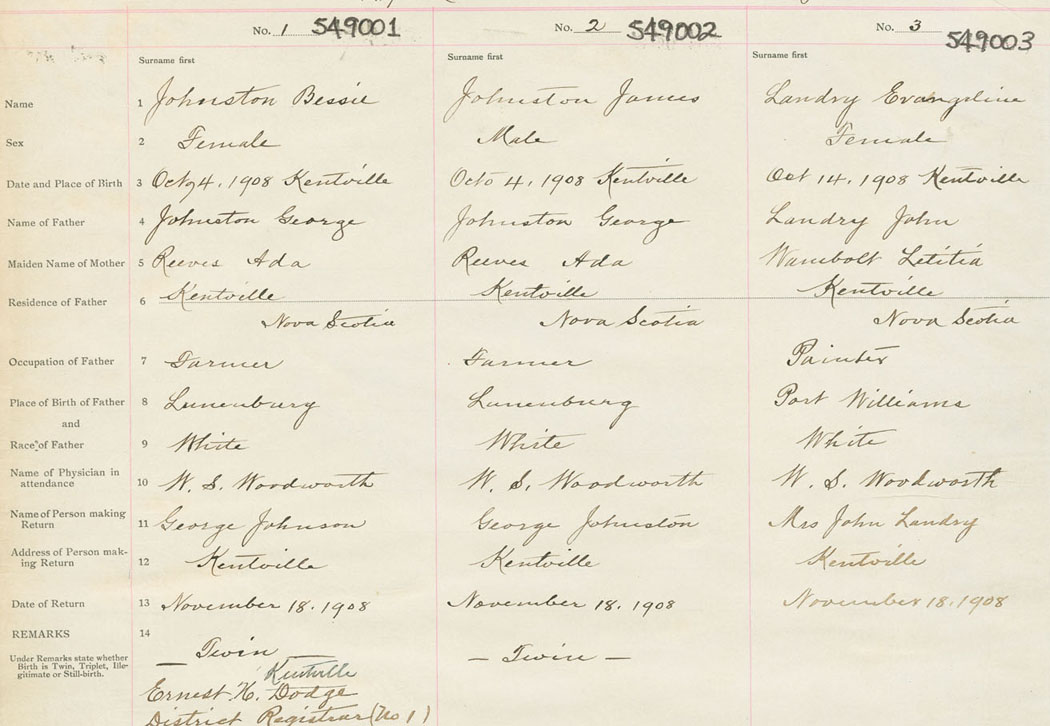 No. 1 549001 No. 2 549002 No. 3 549003
Surname first Surname first Surname first
Name 1 Johnston Bessie Johnston James Landry Evangeline
Sex 2 Female Male Female
Date and Place of Birth 3 Oct 4, 1908 Kentville Octo 4, 1908 Kentville Oct 14, 1908 Kentville
Name of Father 4 Johnston George Johnston George Landry John
Maiden Name of Mother 5 Reeves Ada Reeves Ada Wambolt Letitia
Residence of Father 6 Kentville Kentville Kentville
Nova Scotia Nova Scotia Nova Scotia
Occupation of Father 7 Farmer Farmer Painter
Place of Birth of Father 8 Lunenburg Lunenburg Port Williams
and
Race of Father 9 White White White
Name of Physician in
attendance 10 W. S. Woodworth W. S. Woodworth W. S. Woodworth
Name of Person making
Return 11 George Johnson George Johnston Mrs John Landry
Address of Person mak-
ing Return 12 Kentville Kentville Kentville
Date of Return 13 November 18. 1908 November 18. 1908 November 18. 1908
REMARKS 14
Under Remarks state whether
Birth is Twin, Triplet, Ille-
gitimate or Still-birth.
— Twin — — Twin —
Kentville
Ernest H. Dodge
District Registrar (No 1)